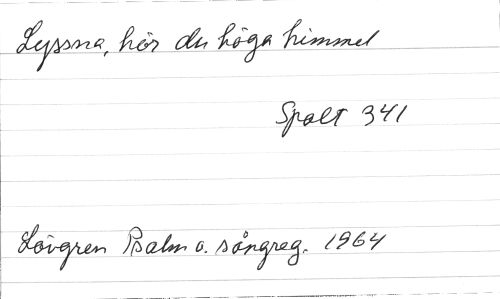 Lyssna, hör du höga himmel
Spalt 341
Lövgren Psalm o. sångreg. 1964